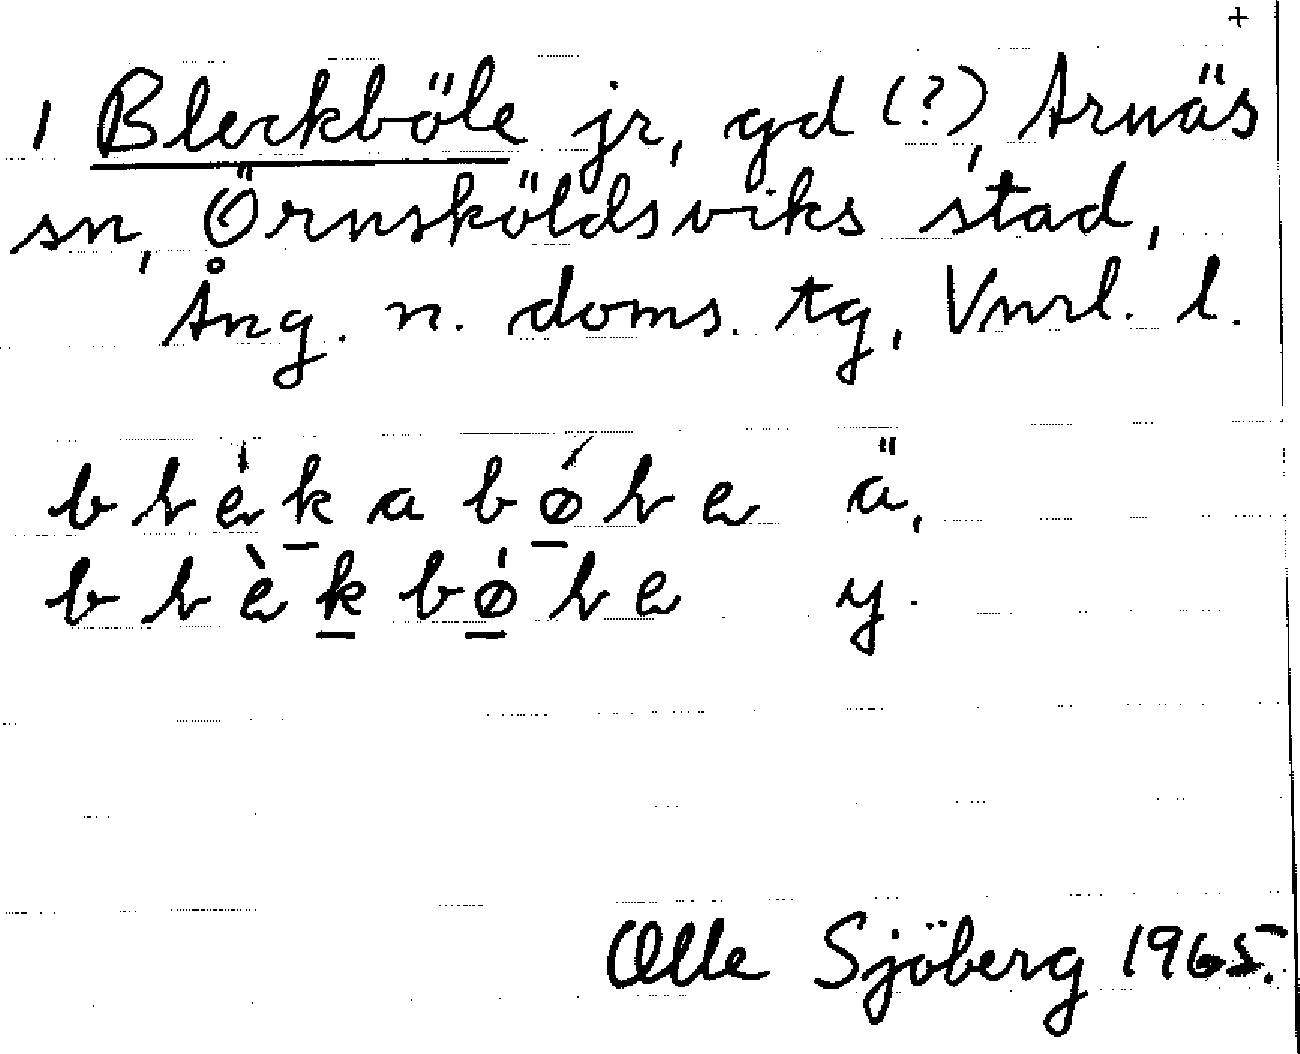 +
1 Bleckböle jr, gd (?), Arnäs
sn, Örnsköldsviks stad,
Ång. n. doms. tg, Vnrl. l.
blèkabø̱le ä,
blèkbø̱le y.
Olle Sjöberg 1965.